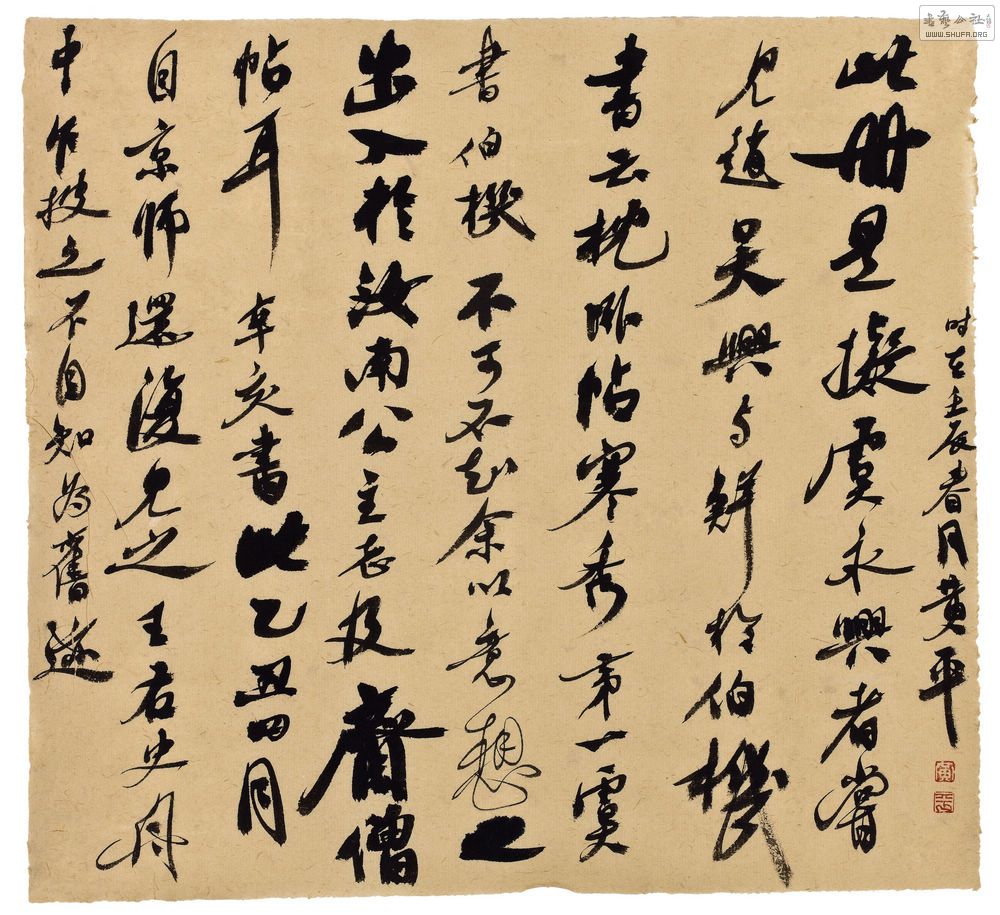 此册是擬虞永興者嘗
見趙吴興与鮮于伯機
書云枕卧帖寒秀第一虞
書伯機不可不知余以意想之
出入於汝南公主志及齋僧
帖耳辛亥書此乙丑四月
自京师還復見之王右史舟
中作披之不自知为舊迹
时在壬辰春月黄平
黄平
書藝公社
WWW.SHUFA.ORG